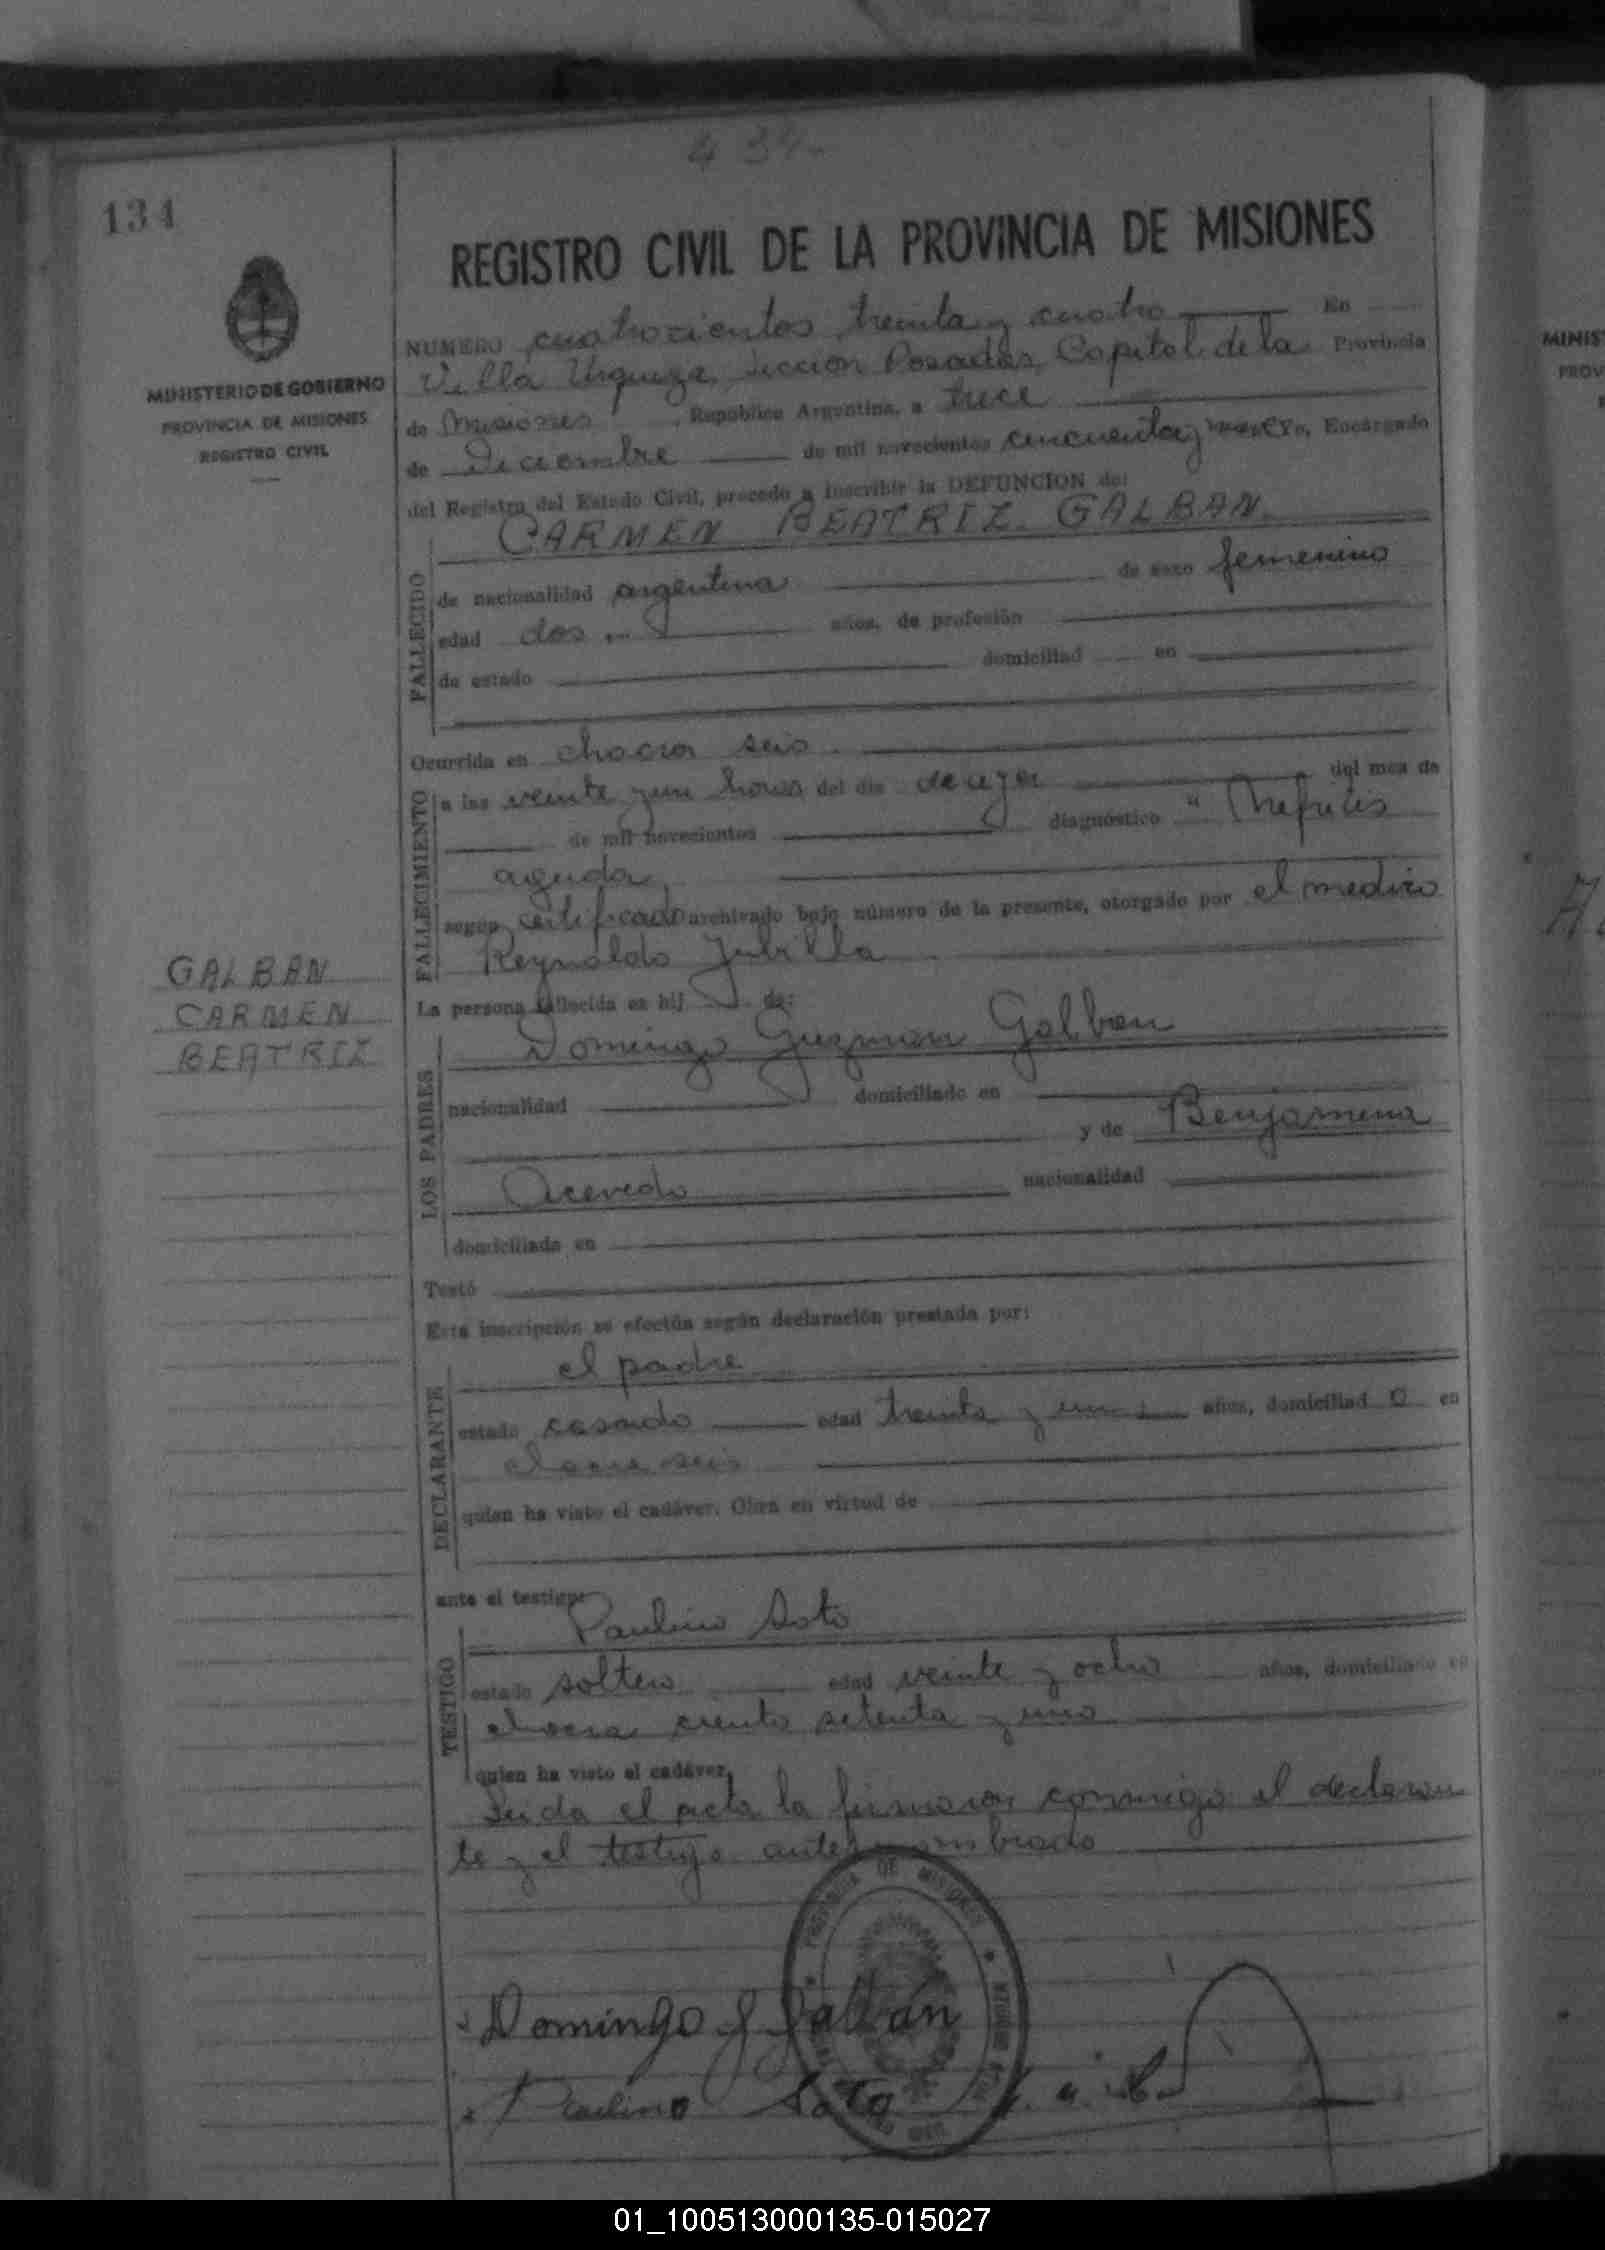 434-
134
REGISTRO CIVIL DE LA PROVINCIA DE MISIONES
MINISTERIO DE GOBIERNO
PROVINCIA DE MISIONES
REGISTRO CIVIL
NUMERO cuatrocientos treinta y cuatro En
Villa Urquiza, Sección Posadas, Capital de la Provincia
de Misiones, República Argentina, a trece
de Diciembre de mil novecientos cincuenta y, Encargado
del Registro del Estado Civil, procedo a inscribir la DEFUNCION de:
CARMEN BEATRIZ GALBAN
FALLECIDO
de nacionalidad argentina de sexo femenino
edad dos años, de profesión
de estado domiciliad en
Ocurrida en chacra seis.
FALLECIMIENTO
a las veinte y un horas del día de ayer del mes de
de mil novecientos diagnóstico "Nefritis
aguda,
según certificado archivado bajo número de la presente, otorgado por el medico
Reynaldo
GALBAN
CARMEN
BEATRIZ
La persona fallecida es hij de:
LOS PADRES
Domingo Guzman Galban
nacionalidad domiciliado en
y de Benjamina
Acevedo nacionalidad
domiciliada en
Testó
Esta inscripción se efectúa según declaración prestada por:
DECLARANTE
el padre
estado casado edad treinta y un años, domiciliad o en
chacra seis
quien ha visto el cadáver. Obra en virtud de
ante el testigo:
TESTIGO
Paulino Soto
estado soltero edad veinte y ocho años, domiciliado en
chacra ciento setenta y uno
quien ha visto el cadáver.
Leida el acta la firmaron conmigo el declaran
te y el testigo antes nombrado
PROVINCIA DE MISIONES
Domingo G Galbán
Paulino Soto
MINIS
PROV
01_100513000135-015027